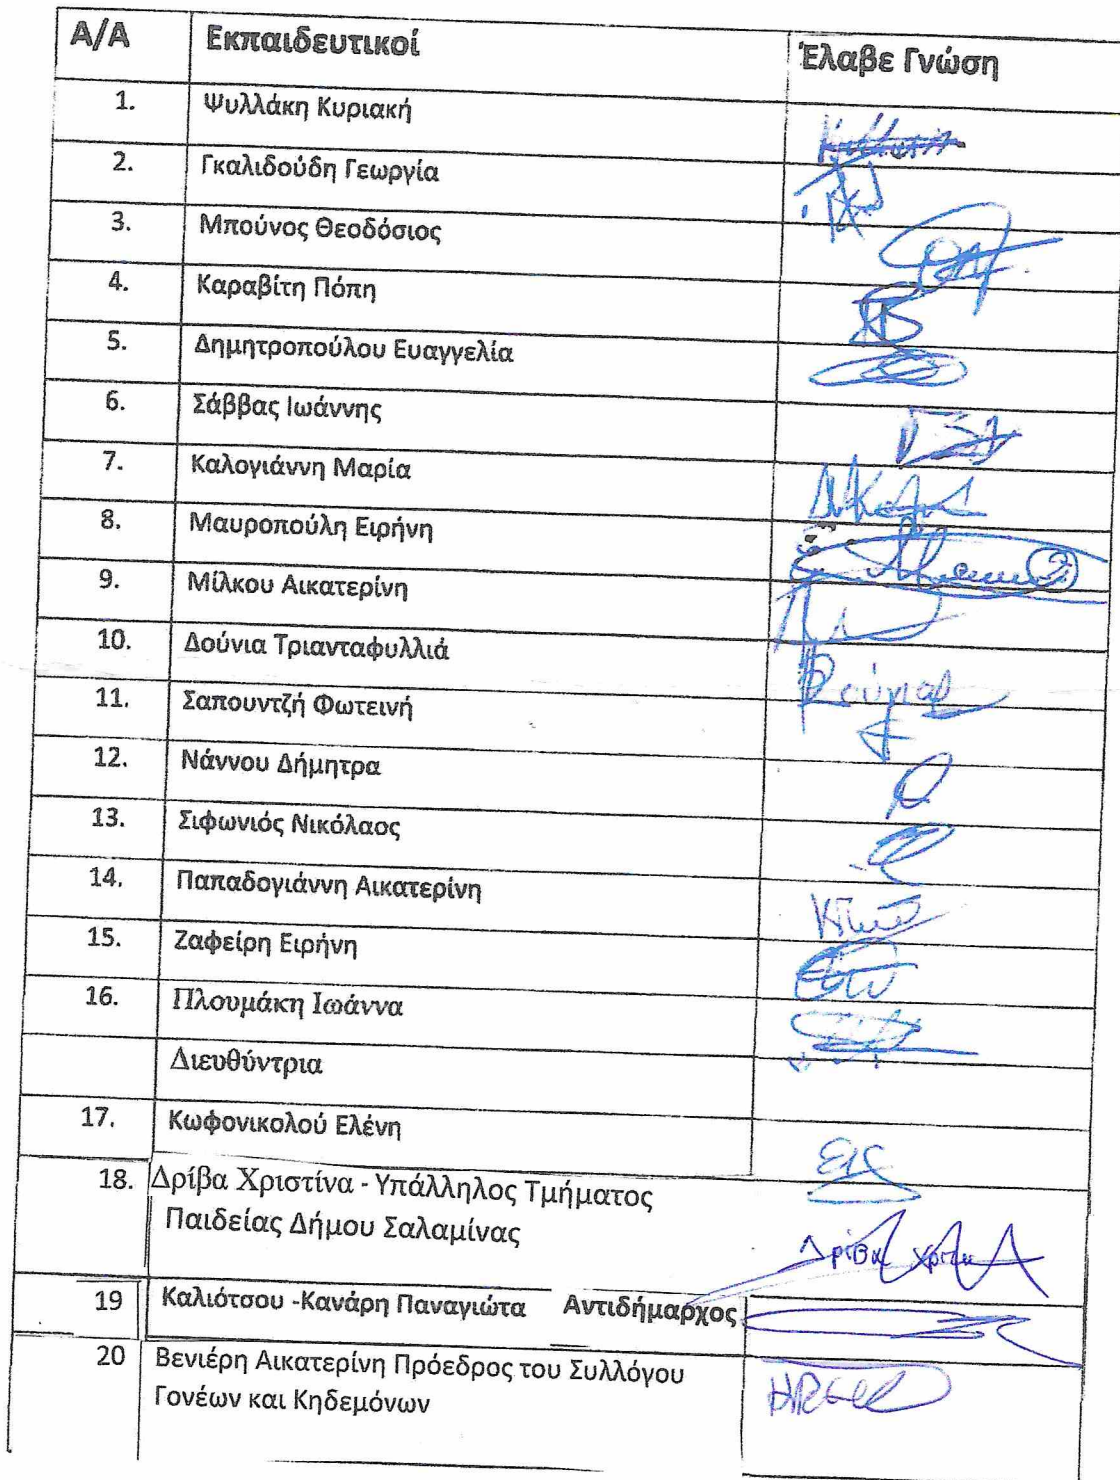 Α/Α Εκπαιδευτικοί Έλαβε Γνώση
1. Ψυλλάκη Κυριακή
2. Γκαλιδούδη Γεωργία
3. Μπούνος Θεοδόσιος
4. Καραβίτη Πόπη
5. Δημητροπούλου Ευαγγελία
6. Σάββας Ιωάννης
7. Καλογιάννη Μαρία
8. Μαυροπούλη Ειρήνη
9. Μίλκου Αικατερίνη
10. Δούνια Τριανταφυλλιά
11. Σαπουντζή Φωτεινή
12. Νάννου Δήμητρα
13. Σιφωνιός Νικόλαος
14. Παπαδογιάννη Αικατερίνη
15. Ζαφείρη Ειρήνη
16. Πλουμάκη Ιωάννα
Διευθύντρια
17. Κωφονικολού Ελένη
18. Δρίβα Χριστίνα - Υπάλληλος Τμήματος
Παιδείας Δήμου Σαλαμίνας
Δρίβα
19 Καλιότσου -Κανάρη Παναγιώτα Αντιδήμαρχος
20 Βενιέρη Αικατερίνη Πρόεδρος του Συλλόγου
Γονέων και Κηδεμόνων